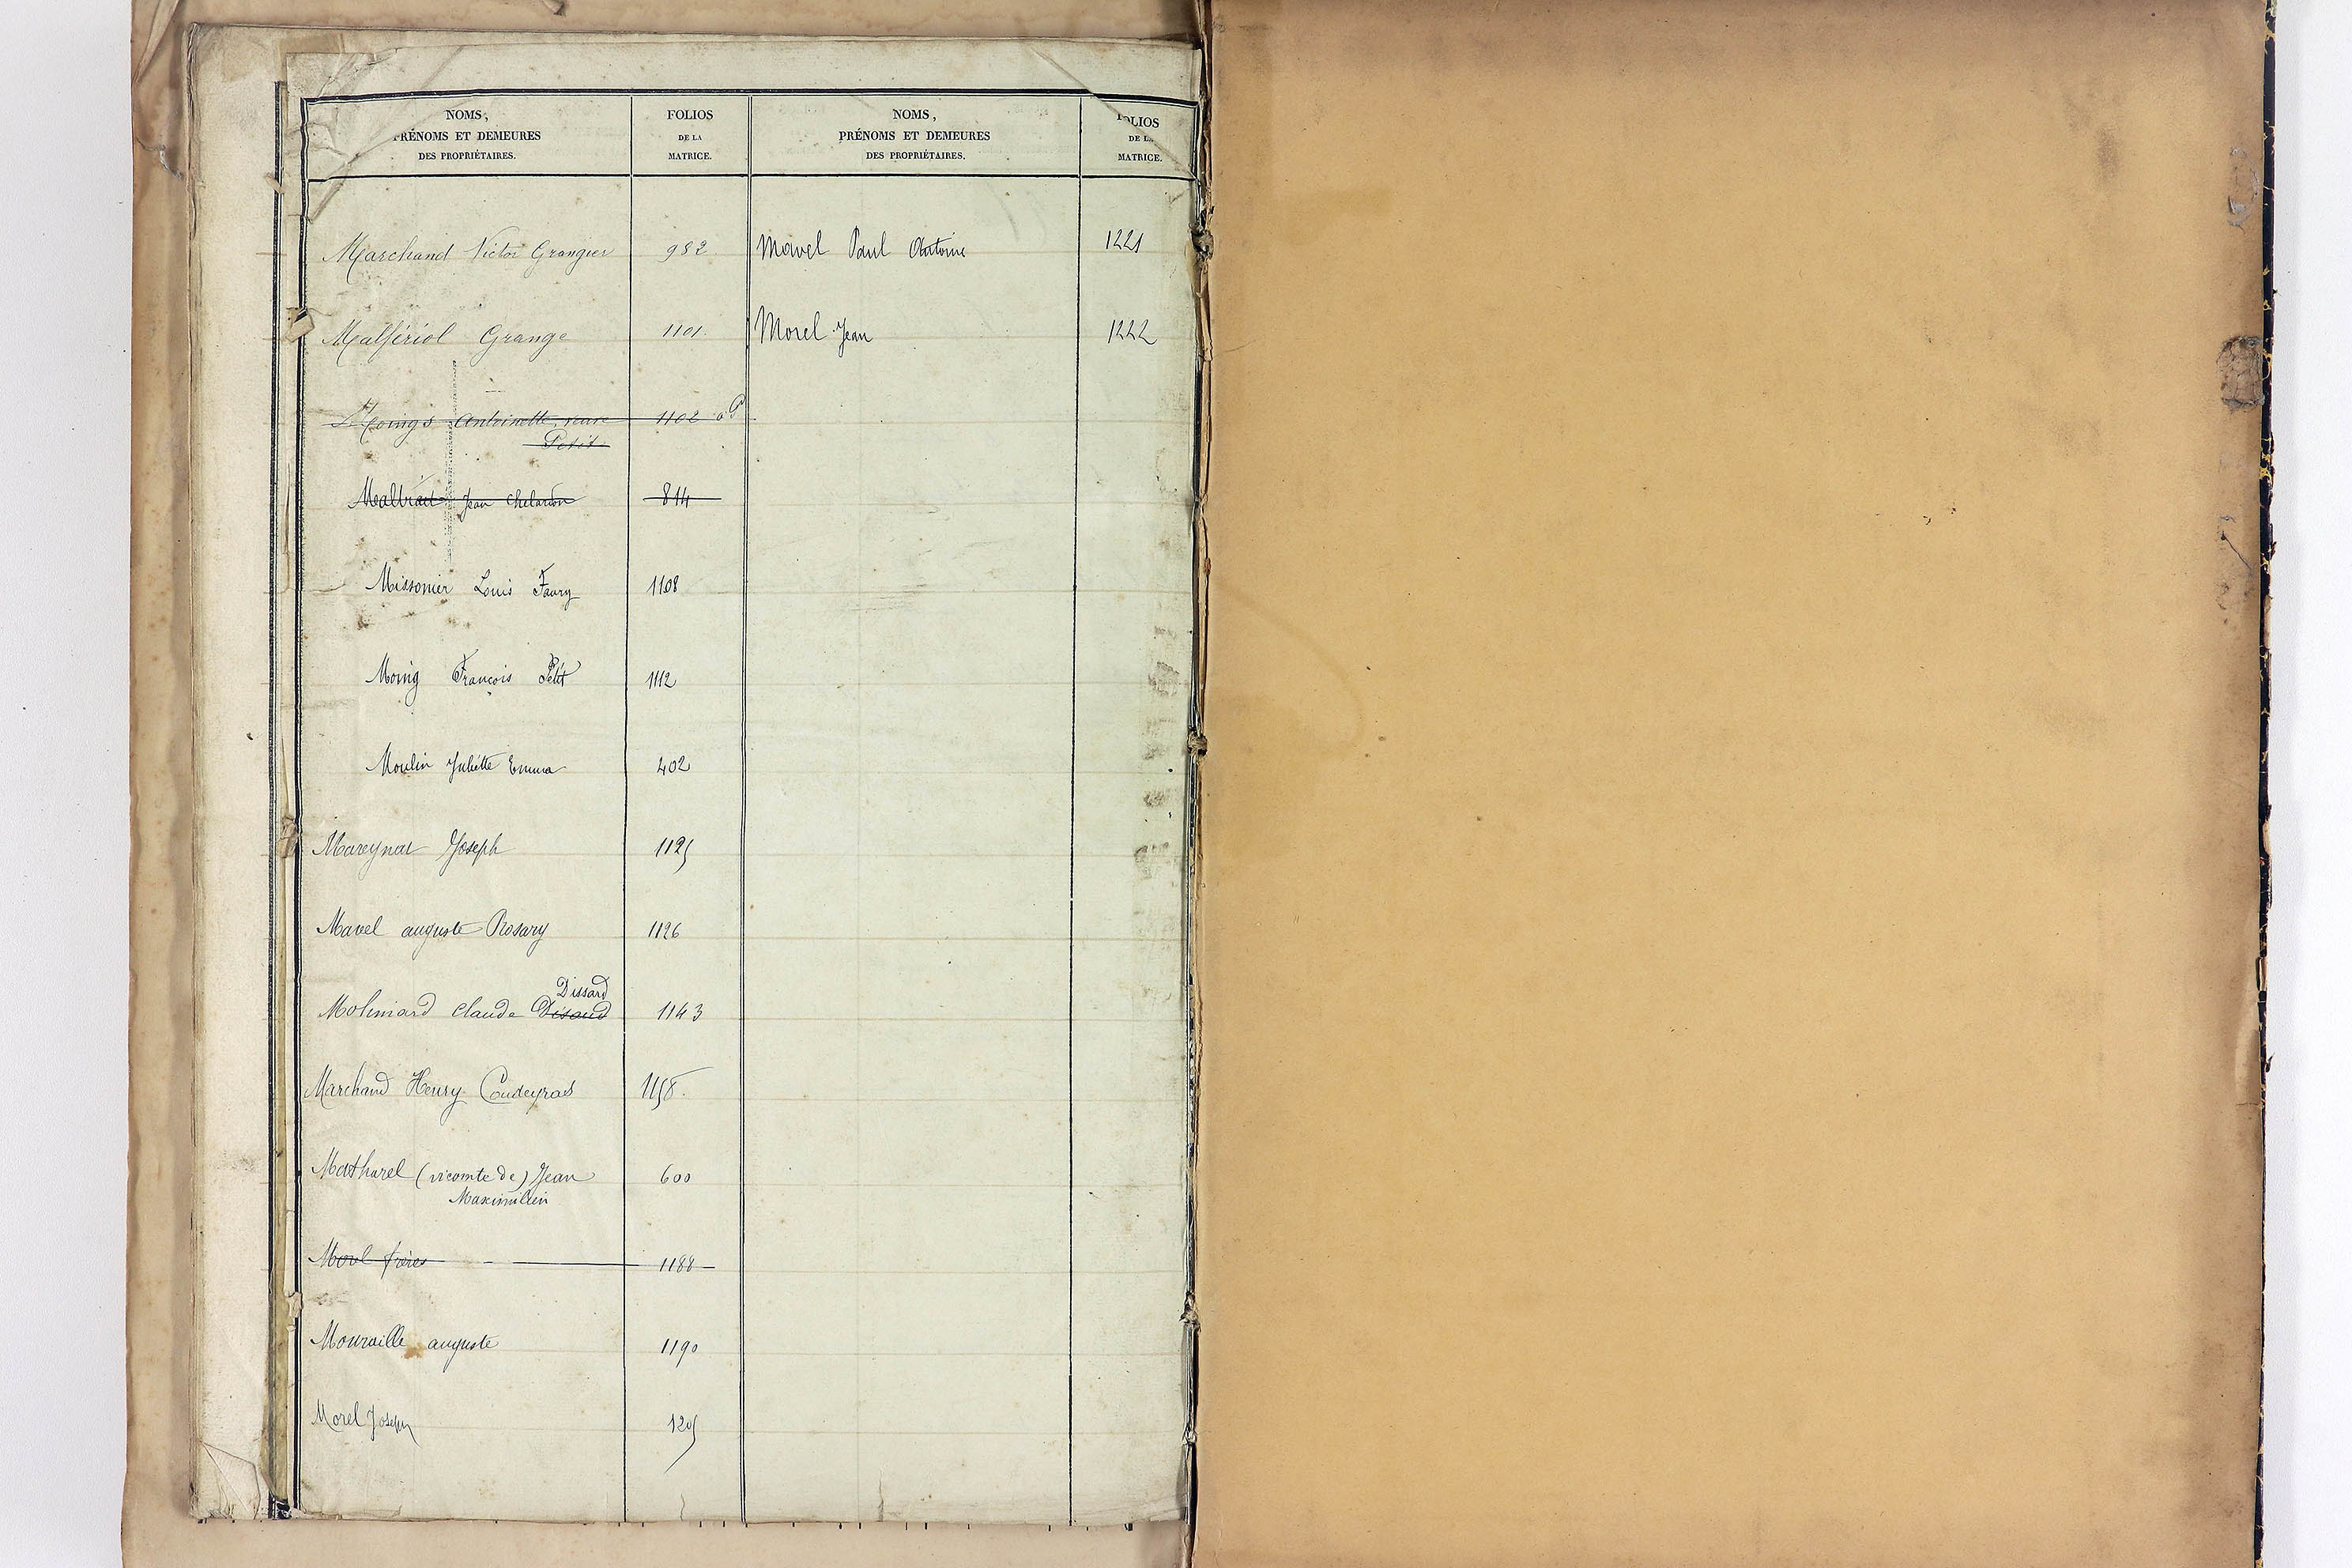 NOMS,
PRÉNOMS ET DEMEURES
DES PROPRIÉTAIRES.
FOLIOS
DE LA
MATRICE.
Marchand Victor Grangier 982
Malfériol Grange 1101.
Moings Antoinette veuve 1102
Petit
Jean Chelarion 814
Missonier Louis Faury 1108
Moing François Petit 1112
Moulin Juliette Emma 402
Mareynat Joseph 1125
Mavel auguste Rosary 1126
Dissard
Moliniard Claude Disard 1143
Marchand Henry Coudeyras 1158.
Matharel (vicomte de) Jean 600
Maximilien
Morel frères 1188
Mouraille auguste 1190
Morel Joseph 1205
NOMS,
PRÉNOMS ET DEMEURES
DES PROPRIÉTAIRES.
FOLIOS
DE LA
MATRICE.
Mavel Paul Antoine 1221
Morel Jean 1222